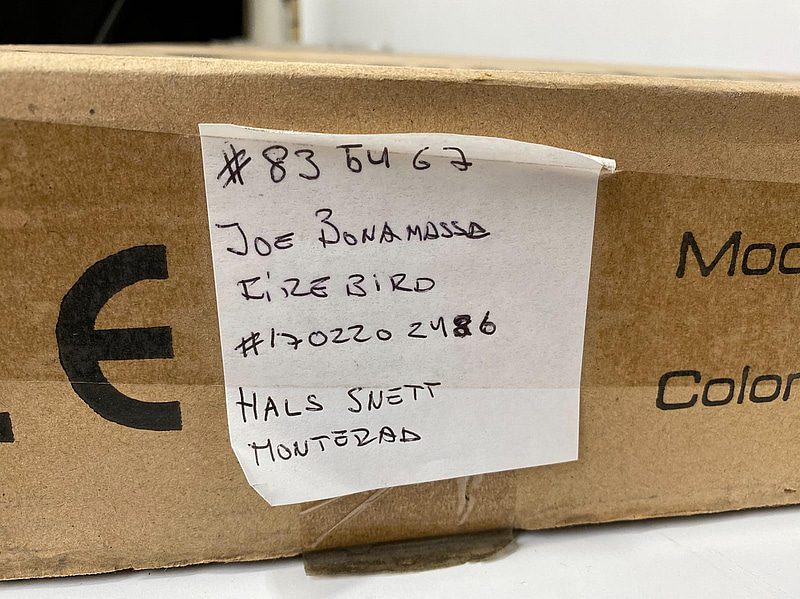 #835467
JOE BONAMASSA
FIREBIRD
#1702202486
HALS SNETT
MONTERAD
CE
Color